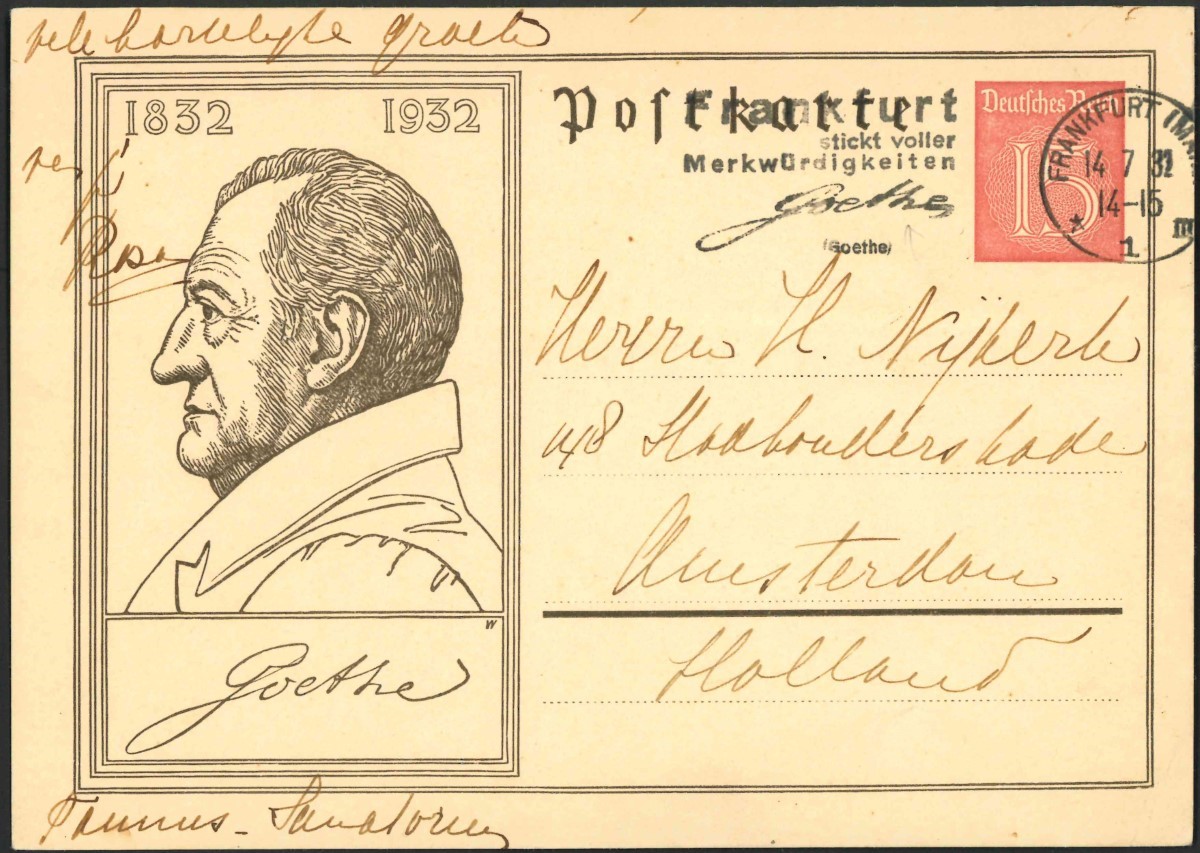 vele hartelyke groeten
1832 1932
Rosa
W
Goethe
Taunus - Sanatorium
Postkarte
Frankfurt
stickt voller
Merkwürdigkeiten
Goethe
(Goethe)
Deutsches Reich
15
FRANKFURT (MAIN
14 7 32
14-15
* 1 m
Herrn H. Nijkerk
148 Stadhouderskade
Amsterdam
Holland